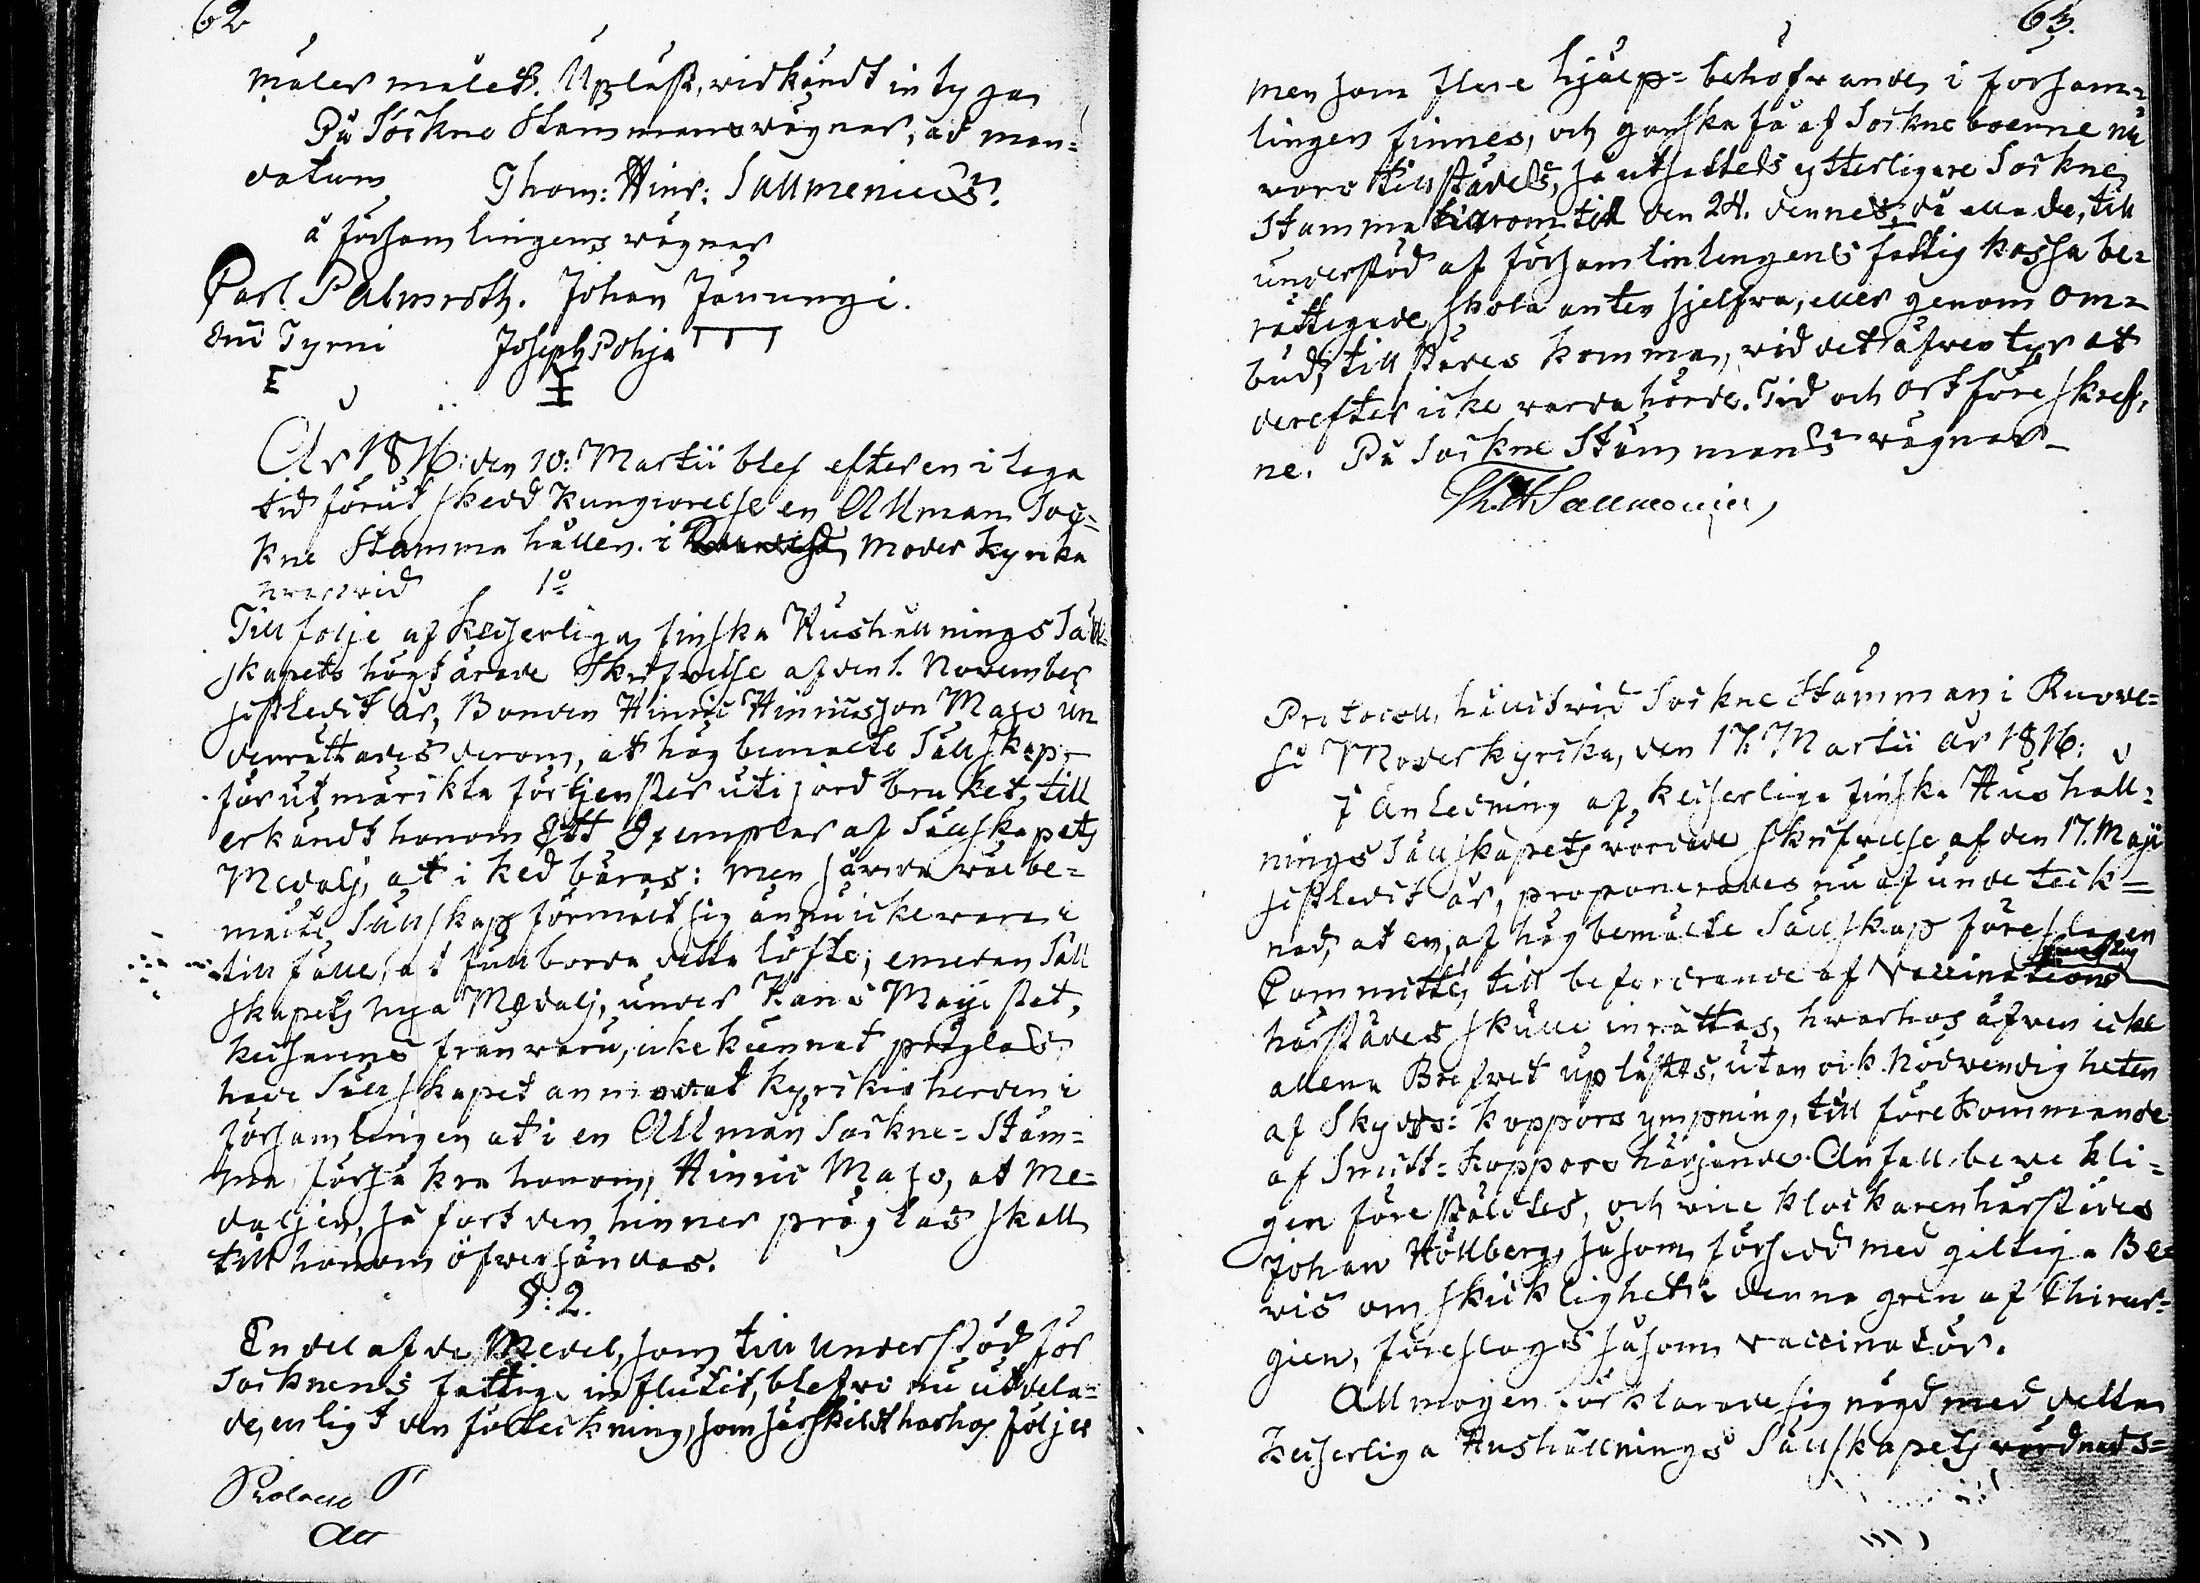 62
måles målet. Upläst, widkändt intyga
På Sockne Stämmans wägnar, ad man=
datum Thom: Hinr: Sallmenius.
å församlingens wägnar
Carl Palmroth. Johan Jämingi.
Eric Tyrni Joseph Pohja
År 1816. den 10: Martii blef efter en i laga
tid förut skedd kungiörelse en Allmän Soc=
kne Stämma hållen i Moder kyrka
hvarwid 1º
Till följe af Keiserliga finska Hushållnings Säll=
skapets högtärade Skrifwelse af den 1. November
sistledit år, Bonden Hinric Hinricsson Maso un
derrättades derom, at högbemälte Sällskap,
för utmärikta förtjenster uti jordbruket, till
erkändt honom Ett Exemplar af Sällskapets
Medalj, at i ked bäras: men såwida wälbe=
mälte Sällskap förmält sig ännu icke wara i
tillfälle, at fullborda detta löfte; emedan Säll
skapets nya Medalj, under Hans Majestet,
Keisarens frånwaru, icke kunnat präglas
hade Sällskapet anmodat kyrkioherden i
församlingen at i en Allmän Sockne=Stäm=
ma försäkra honom, Hinric Maso, at Me=
daljen, så fort den hinner präglas skall
till honom öfwersändas.
§: 2.
En del af de Medel, som till understöd för
Socknens fattige influtit, blefwo nu utdela=
de, enligt den förteckning, som särskildt harhos följer
63.
men som flere hjälp=behöfwande i försam=
lingen finnes, och ganska få af Sockneboerne nu
woro tillstädes, så utsattes ytterligare Sockne
Stämma härom till den 24. dennes, då alla de, till
understöd af församlinlingens fattig kassa be=
rättigade, skola anten sjelfwa, eller genom om=
bud, tillstädes komma, wid det äfwentyr at
derefter icke warda hörde. Tid och ort föreskref,
ne. På Sockne Stämmans wägnar
Th. H Sallmenius,
Protocoll, hållit wid Sockne Stämman i Ruowe=
si Moderkyrka, den 17. Martii år 1816:
I Anledning af Keiserliga finska Hushåll=
nings Sällskapets wördade skrifwelse af den 17. Maji
sistledit år, proponerades nu af undeteck=
nad, at en, af högbemälte Sällskap föreslagen
Committé, till befordrande af Vaccinations
härstädes skulle inrättas, hwarhos äfwen icke
allena Brefwet uplästes, utan ock Nödwendigheten
af Skydds=koppors ympning, till förekommande
af Smitt=koppors härjande Anfall bewekli=
gen föreställdes, och vice klockaren härstädes
Johan Höllberg, såsom försedd med giltiga Be
wis om skicklighet i denna gren af Chirur=
gien, föreslogs såsom vaccinatör.
Allmogen förklarade sig nögd med detta
Keiserliga Hushållnings Sällskapets wårdnads=